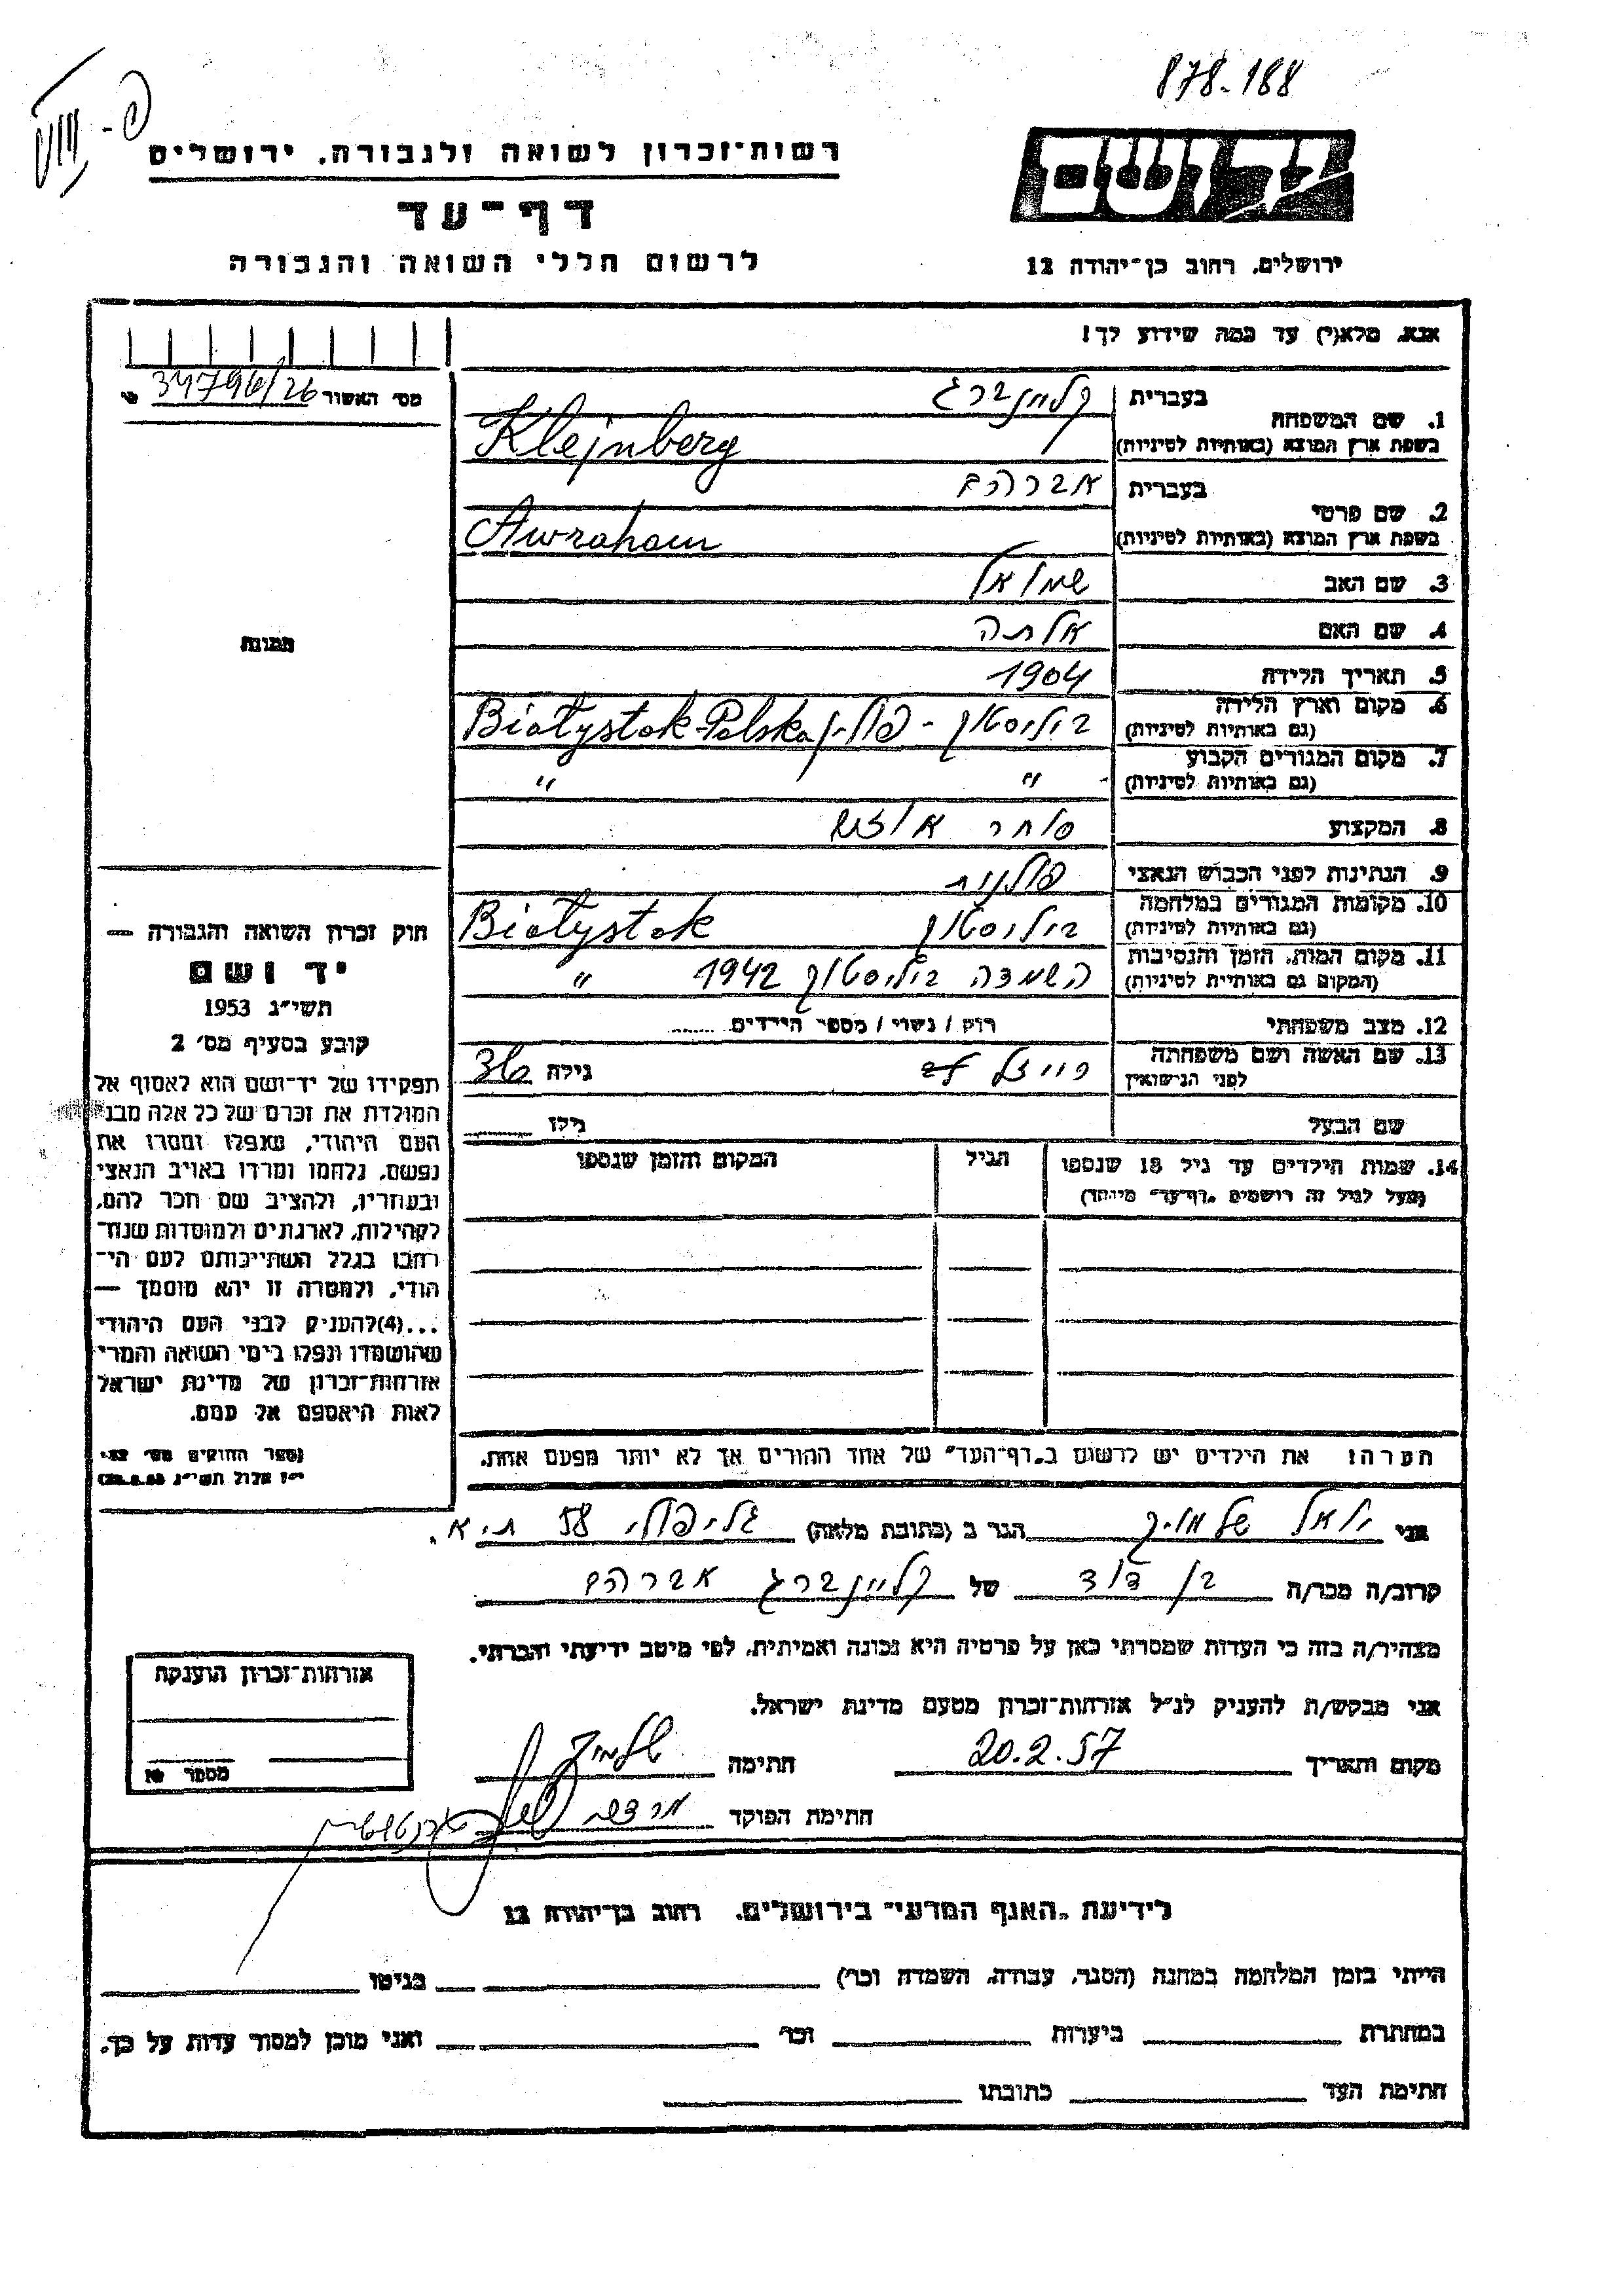 878-188
רשות־זכרון לשואה ולגבורה, ירושלים
דף־עד
לרשום חללי השואה והגבורה
ירושלים, רחוב בן־יהודה 12
אנא, מלא(י) עד כמה שידוע לך!
מס׳ האשור 34796/26
1. שם המשפחה
בעברית קליינברג
בשפת ארץ המוצא (באותיות לטיניות) Klejnberg
2. שם פרטי
בעברית אברהם
בשפת ארץ המוצא (באותיות לטיניות) Awraham
3. שם האב שמואל
4. שם האם אלתה
תמונה
5. תאריך הלידה 1904
6. מקום וארץ הלידה ביליסטוק - פולין Białystok-Polska
(גם באותיות לטיניות)
7. מקום המגורים הקבוע " "
(גם באותיות לטיניות)
8. המקצוע סוחר
9. הנתינות לפני הכבוש הנאצי פולנית
10. מקומות המגורים במלחמה ביליסטוק Białystok
(גם באותיות לטיניות)
11. מקום המות, הזמן והנסיבות השמדה ביליסטוק 1942 "
(המקום גם באותיות לטיניות)
12. מצב משפחתי רוק / נשוי / מספר הילדים
13. שם האשה ושם משפחתה פייגל גילה
לפני הנישואין
שם הבעל גילו
14. שמות הילדים עד גיל 18 שנספו הגיל המקום והזמן שנספו
(מעל לגיל זה רושמים "דף־עד" מיוחד)
חוק זכרון השואה והגבורה —
יד ושם
תשי״ג 1953
קובע בסעיף מס׳ 2
תפקידו של יד־ושם הוא לאסוף אל
המולדת את זכרם של כל אלה מבני
העם היהודי, שנפלו ומסרו את
נפשם, נלחמו ומרדו באויב הנאצי
ובעוזריו, ולהציב שם וזכר להם,
לקהילות, לארגונים ולמוסדות שנח־
רבו בגלל השתייכותם לעם הי־
הודי, ולמטרה זו יהא מוסמך —
...(4)להעניק לבני העם היהודי
שהושמדו ונפלו בימי השואה והמרי
אזרחות־זכרון של מדינת ישראל
לאות היאספם אל עמם.
(ספר החוקים מס׳ 132,
י״ז אלול תשי״ג 28.8.53)
הערה: את הילדים יש לרשום ב"דף־העד" של אחד ההורים אך לא יותר מפעם אחת.
אני יואל הגר ב (כתובת מלאה) גליפולי 58 ת״א.
קרוב/ה מכר/ה בן דוד של קליינברג אברהם
מצהיר/ה בזה כי העדות שמסרתי כאן על פרטיה היא נכונה ואמיתית, לפי מיטב ידיעתי והכרתי.
אני מבקש/ת להעניק לנ״ל אזרחות־זכרון מטעם מדינת ישראל.
אזרחות־זכרון הוענקה
מספר
מקום ותאריך 20.2.57 חתימה
חתימת הפוקד
לידיעת "האגף המדעי" בירושלים, רחוב בן־יהודה 12
הייתי בזמן המלחמה במחנה (הסגר, עבודה, השמדה וכו׳) בגיטו
במחתרת ביערות וכו׳ ואני מוכן למסור עדות על כך.
חתימת העד כתובתו